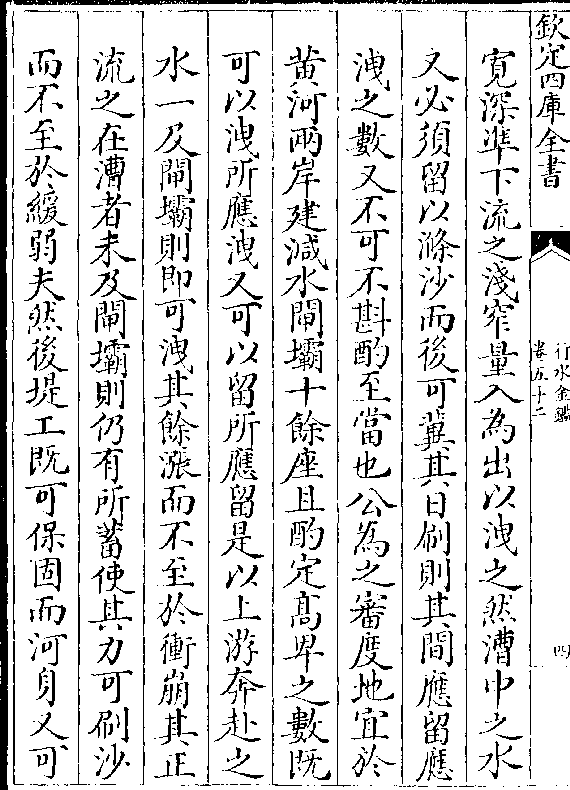 欽定四庫全書
行水金鑑
卷五十二
四
寛深準下流之淺窄量入為出以洩之然漕中之水
又必須留以滌沙而後可冀其日刷則其間應留應
洩之數又不可不斟酌至當也公為之審度地宜於
黄河兩岸建減水閘壩十餘座且酌定髙卑之數既
可以洩所應洩又可以留所應留是以上游奔赴之
水一及閘壩則即可洩其餘漲而不至於衝崩其正
流之在漕者未及閘壩則仍有所蓄使其力可刷沙
而不至於緩弱夫然後堤工既可保固而河身又可